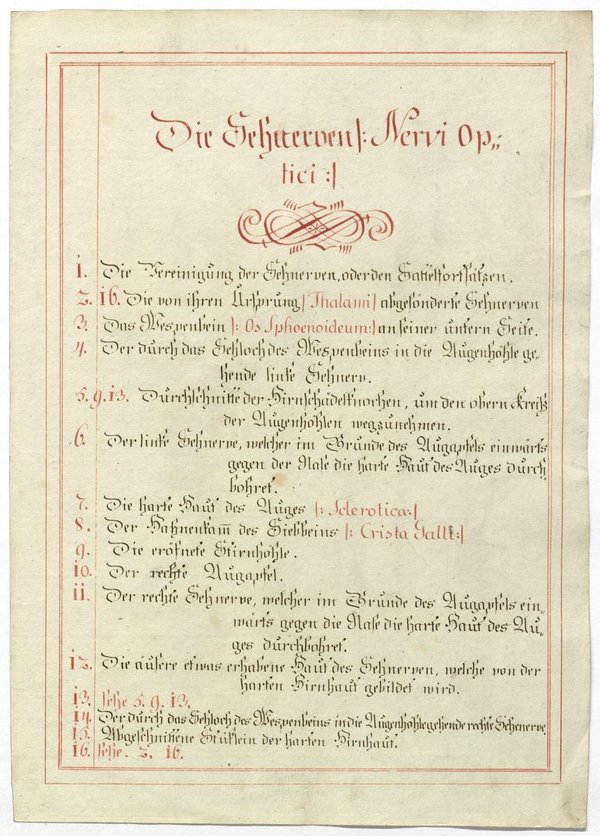 Die Sehnerven |: Nervi Op=
tici :|
1. Die Vereinigung der Sehnerven, oder den Sattelfortsätzen.
2. 16. Die von ihren Ursprung | Thalami | abgesönderte Sehnerven
3. Das Wespenbein |: Os Sphoenoideum :| an seiner untern Seite.
4. Der durch das Schloch des Wespenbeins in die Augenhöhle ge=
hende linke Sehnerv.
5. 9. 13. Durchschnitte der Hirnschädelknochen, um den obern Kreiß
der Augenhöhlen wegzunehmen.
6. Der linke Sehnerve, welcher im Grunde des Augapfels einwärts
gegen der Nase die harte Haut des Auges durch
bohret.
7. Die harte Haut des Auges |: Sclerotica :|
8. Der Hahnenkam̅ des Siebbeins |: Crista Galli :|
9. Die eröfnete Stirnhöhle.
10. Der rechte Augapfel.
11. Der rechte Sehnerve, welcher im Grunde des Augapfels ein=
wärts gegen die Nase die harte Haut des Au=
ges durchbohret.
12. Die äusere etwas erhabene Haut des Sehnerven, welche von der
harten Hirnhaut gebildet wird.
13. sehe 5. 9. 13.
14. Der durch das Schloch des Wespenbeins in die Augenhöhle gehende rechte Sehenerve
15. Abgeschnittene Stüklein der harten Hirnhaut.
16. sehe. 2. 16.